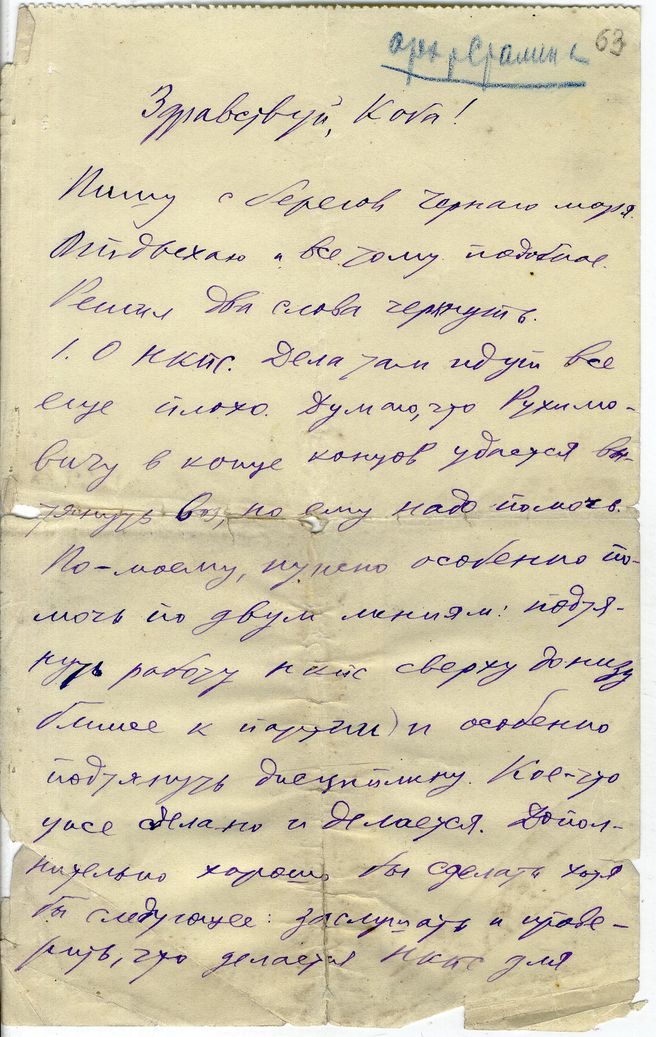 63
Здравствуй, Коба!
Пишу с берегов Чернаго моря.
Отдыхаю и все тому подобное.
Решил два слова черкнуть.
1. О НКПС. Дела там идут все
еще плохо. Думаю, что Рухимо-
вичу в конце концов удастся вы-
тянуть воз, но ему надо помочь.
По-моему, нужно особенно по-
мочь по двум линиям: подтя-
нуть работу НКПС сверху донизу
ближе к партии) и особенно
подтянуть дисциплину. Кое-что
уже сделано и делается. Допол-
нительно хорошо бы сделать хотя
бы следующее: заслушать и прове-
рить, что делается НКПС для